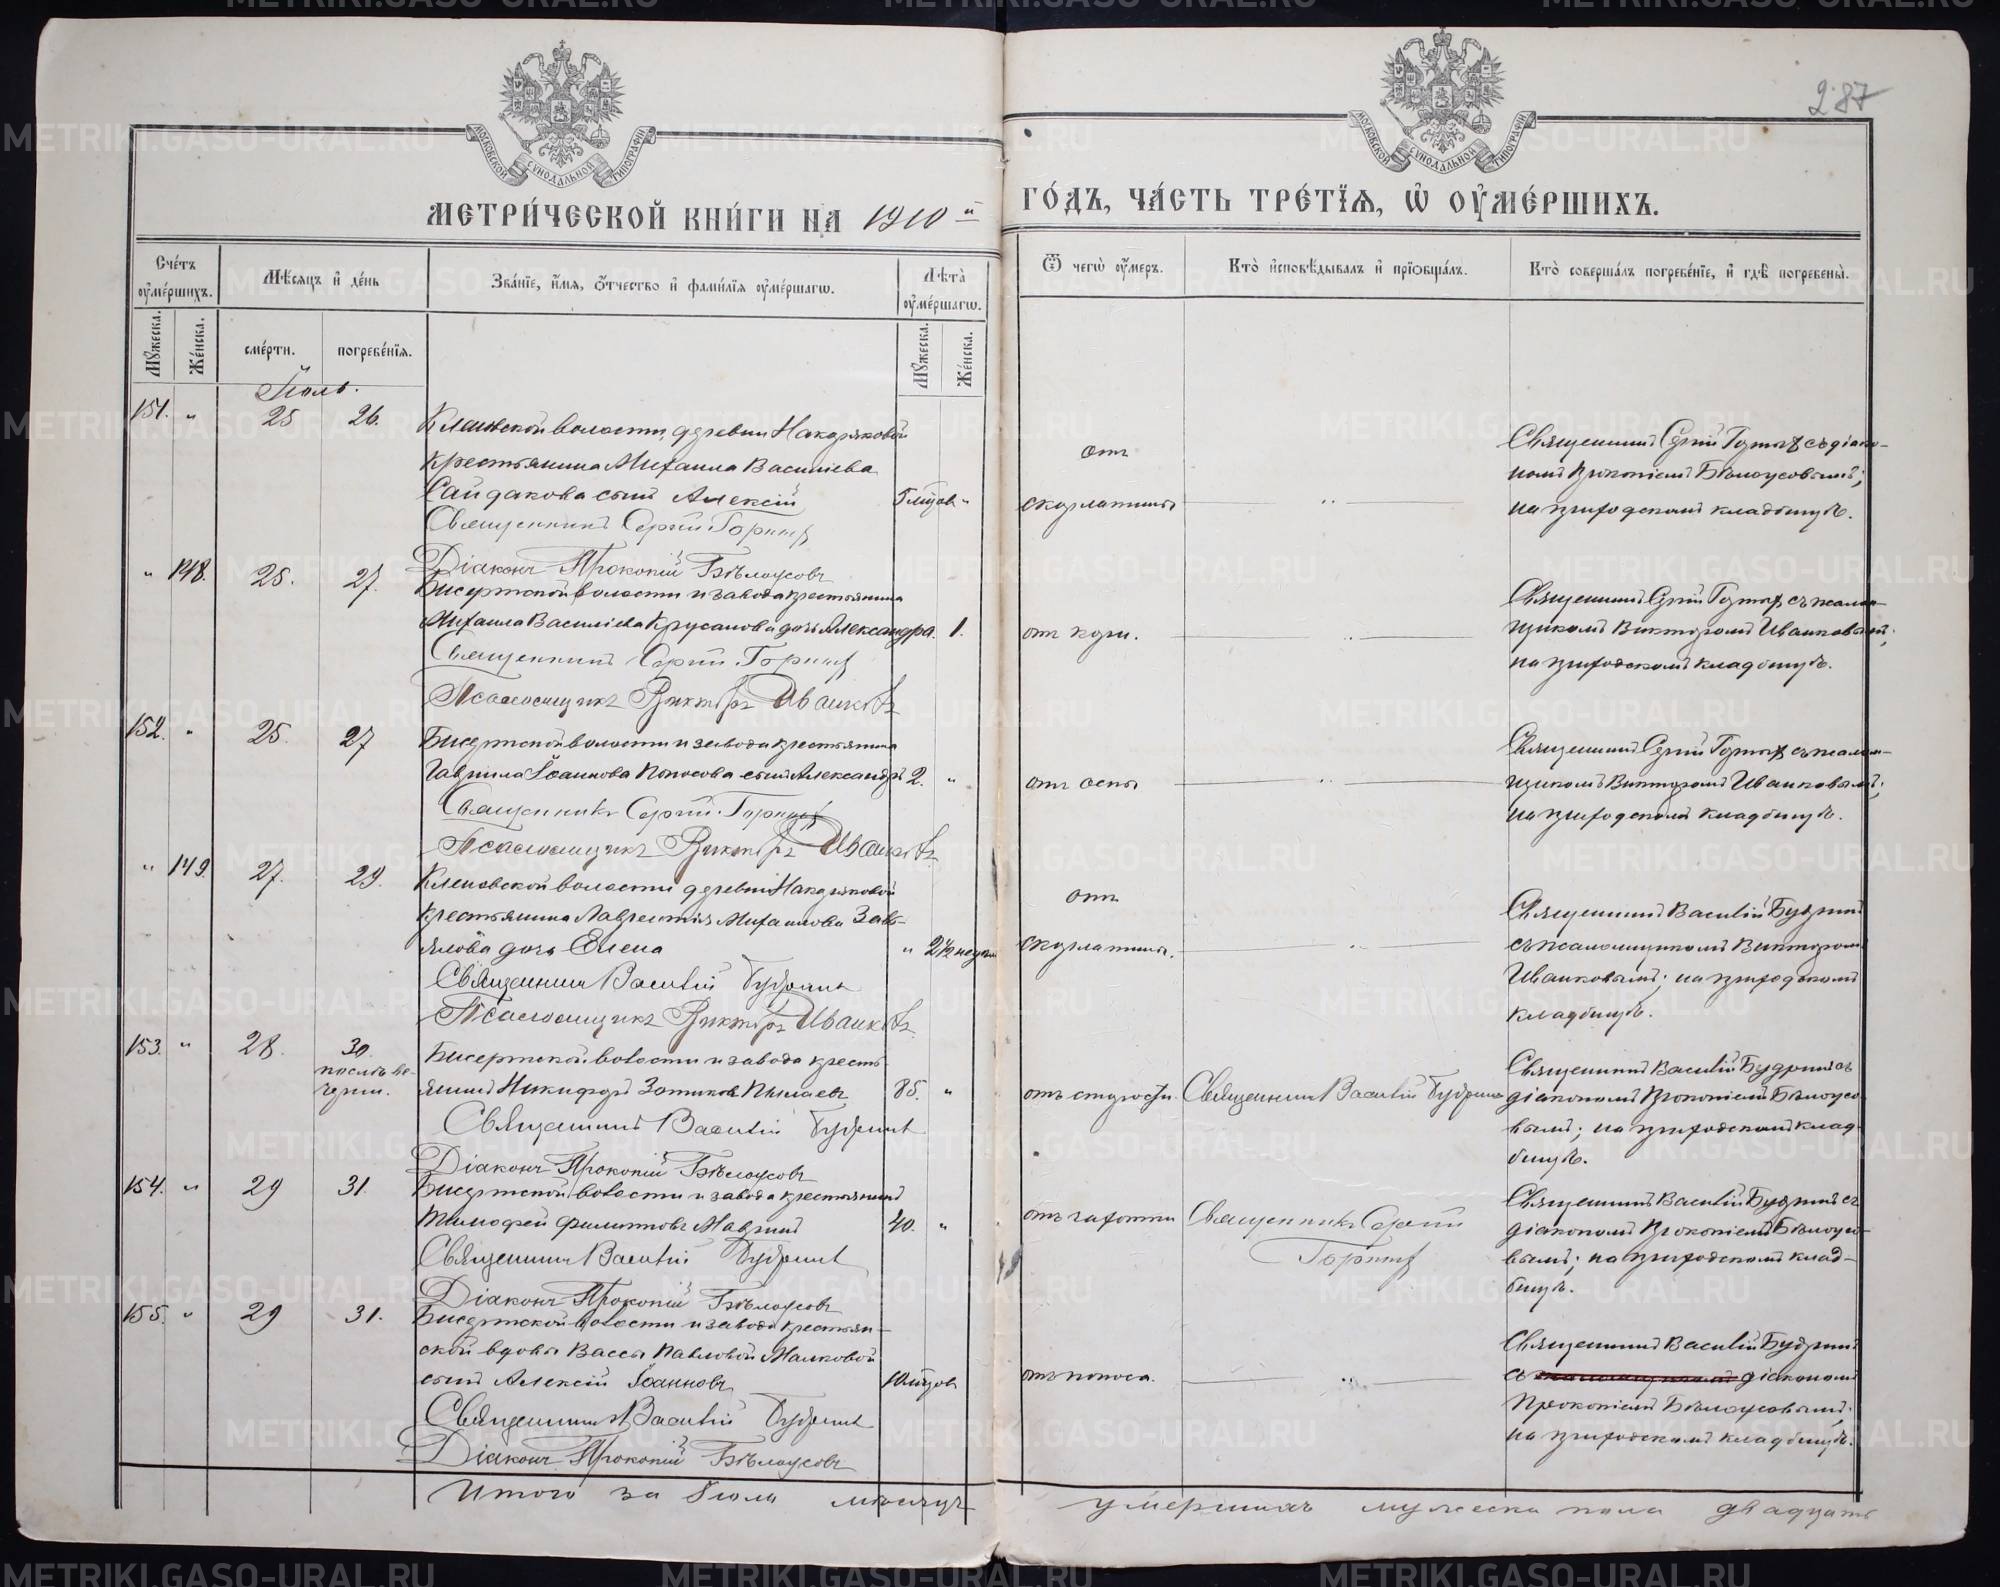 287
МОСКОВСКОЙ СѴНОДАЛЬНОЙ ТИПОГРАФІИ
МОСКОВСКОЙ СѴНОДАЛЬНОЙ ТИПОГРАФІИ
МЕТРИ́ЧЕСКОЙ КНИ́ГИ НА 1910 й
ГО́ДЪ, ЧА́СТЬ ТРЕ́ТІѦ, Ѡ҆ ОУ҆МЕ́РШИХЪ.
Сче́тъ оу҆ме́ршихъ.
Мѣсѧцъ и҆ де́нь
Зва́нїе, и҆́мѧ, ѻ҆́тчество и҆ фами́лїѧ оу҆ме́ршагѡ.
Лѣ́та оу҆ме́ршагѡ.
Ѿ чегѡ̀ оу҆́меръ.
Кто̀ и҆сповѣ́дывалъ и҆ прїѡбща́лъ.
Кто̀ соверша́лъ погребе́нїе, и҆ гдѣ̀ погребены̀.
Мꙋ́жеска.
Же́нска.
сме́рти.
погребе́нїѧ.
Мꙋ́жеска.
Же́нска.
Іюль.
151. " 25 26.
Кленовской волости, деревни Накоряковой
крестьянина Михаила Василіева
Сайдакова сынъ Алексій
Священникъ Сергій
Діаконъ Прокопій Бѣлоусовъ
отъ
скорлатины
Священникъ Сергій съ діако-
номъ Прокопіемъ Бѣлоусовымъ;
на приходскомъ кладбищѣ.
" 148. 25. 27.
Бисертской волости и завода крестьянина
Михаила Василіева Крусанова дочь Александра. 1.
Священникъ Сергій
Псаломщикъ Викторъ Иванковъ
отъ кори.
Священникъ Сергій съ псалом-
щикомъ Викторомъ Иванковымъ;
на приходскомъ кладбищѣ.
152. " 25. 27
Бисертской волости и завода крестьянина
Гавріила Іоаннова сынъ Александръ 2. "
Священникъ Сергій
Псаломщикъ Викторъ Иванковъ
отъ оспы
Священникъ Сергій съ псалом-
щикомъ Викторомъ Иванковымъ;
на приходскомъ кладбищѣ.
" 149. 27. 29.
Кленовской волости деревни Накоряковой
крестьянина Лаврентія Михаилова Завь-
ялова дочь Елена " 2½ недѣли
Священникъ Василій Будринъ
Псаломщикъ Викторъ Иванковъ
отъ
скорлатины.
Священникъ Василій Будринъ
съ псаломщикомъ Викторомъ
Иванковымъ; на приходскомъ
кладбищѣ.
153. " 28. 30.
послѣ ве-
черни.
Бисертской волости и завода кресть-
янинъ Никифоръ Зотиковъ Пылаевъ 85. "
Священникъ Василій Будринъ
Діаконъ Прокопій Бѣлоусовъ
отъ старости. Священникъ Василій Будринъ
Священникъ Василій Будринъ съ
діакономъ Прокопіемъ Бѣлоусо-
вымъ; на приходскомъ клад-
бищѣ.
154. " 29 31.
Бисертской волости и завода крестьянинъ
Тимофей Филипповъ Мавринъ 40. "
Священникъ Василій Будринъ
Діаконъ Прокопій Бѣлоусовъ
отъ чахотки Священникъ Сергій
Священникъ Василій Будринъ съ
діакономъ Прокопіемъ Бѣлоусо-
вымъ; на приходскомъ клад-
бищѣ.
155. " 29 31.
Бисертской волости и завода крестьян-
ской вдовы Вассы Павловой Малковой
сынъ Алексій Іоанновъ
Священникъ Василій Будринъ
Діаконъ Прокопій Бѣлоусовъ
отъ поноса.
Священникъ Василій Будринъ
съ діакономъ
Прокопіемъ Бѣлоусовымъ;
на приходскомъ кладбищѣ.
Итого за Іюль мѣсяцъ умершихъ мужеска пола двадцать
METRIKI.GASO-URAL.RU